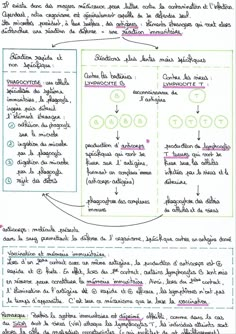 Il existe donc des moyens médicaux pour lutter contre la contamination et l'infection.
Cependant, notre organisme est généralement capable de se défendre seul.
Les microbes possèdent à leur surface des antigènes : éléments étrangers qui vont alors
déclencher une réaction de défense = une réaction immunitaire.
Réaction rapide et
non spécifique :
PHAGOCYTOSE : une cellule
spécialisée du système
immunitaire, le phagocyte,
l'élément étranger :
① adhésion du phagocyte
sur le microbe
② ingestion du microbe
par le phagocyte
③ digestion du microbe
par le phagocyte
④ rejet des débris
Réactions plus lentes mais spécifiques
Contre les bactéries :
LYMPHOCYTE B
Contre les virus :
LYMPHOCYTE T
reconnaissance de
l'antigène
production d'anticorps
spécifiques qui vont se
fixer sur l'antigène,
formant un complexe immun
(anticorps-antigène)
phagocytose des complexes
immuns
production de lymphocytes
T tueurs qui vont se
fixer sur la cellule
infectée par le virus et la
détruire.
phagocytose des débris
de cellules et du virus
* anticorps : molécule présente
dans le sang permettant la défense de l'organisme, spécifique contre un antigène donné
Vaccination et mémoire immunitaire
Lors d'un 2ème contact avec un même antigène, la production d'anticorps est ⊕
rapide et ⊕ forte. En effet, lors du 1er contact, certains lymphocytes B sont mis
en réserve pour constituer la mémoire immunitaire. Ainsi, lors du 2ème contact,
l'élimination de l'antigène est ⊕ rapide et ⊕ efficace, les symptômes n'ont pas
le temps d'apparaître. C'est sur ce mécanisme que se base la vaccination.
Remarque : Parfois le système immunitaire est déprimé, affaibli, comme dans le cas
du SIDA dont le virus (VIH) attaque les lymphocytes T, les individus atteints sont